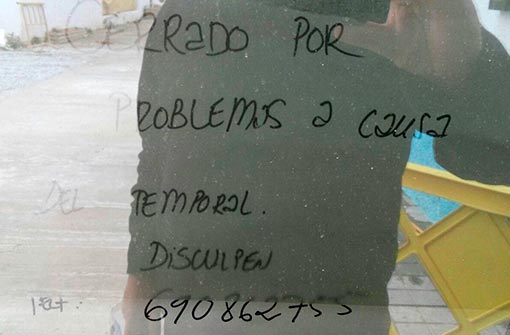 CERRADO POR
PROBLEMAS a causa
DEL TEMPORAL.
DISCULPEN
690862755